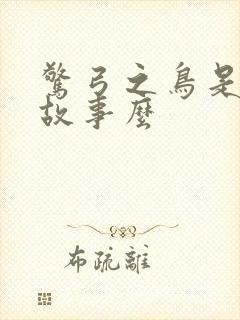 驚弓之鳥是
故事麼
布疏離